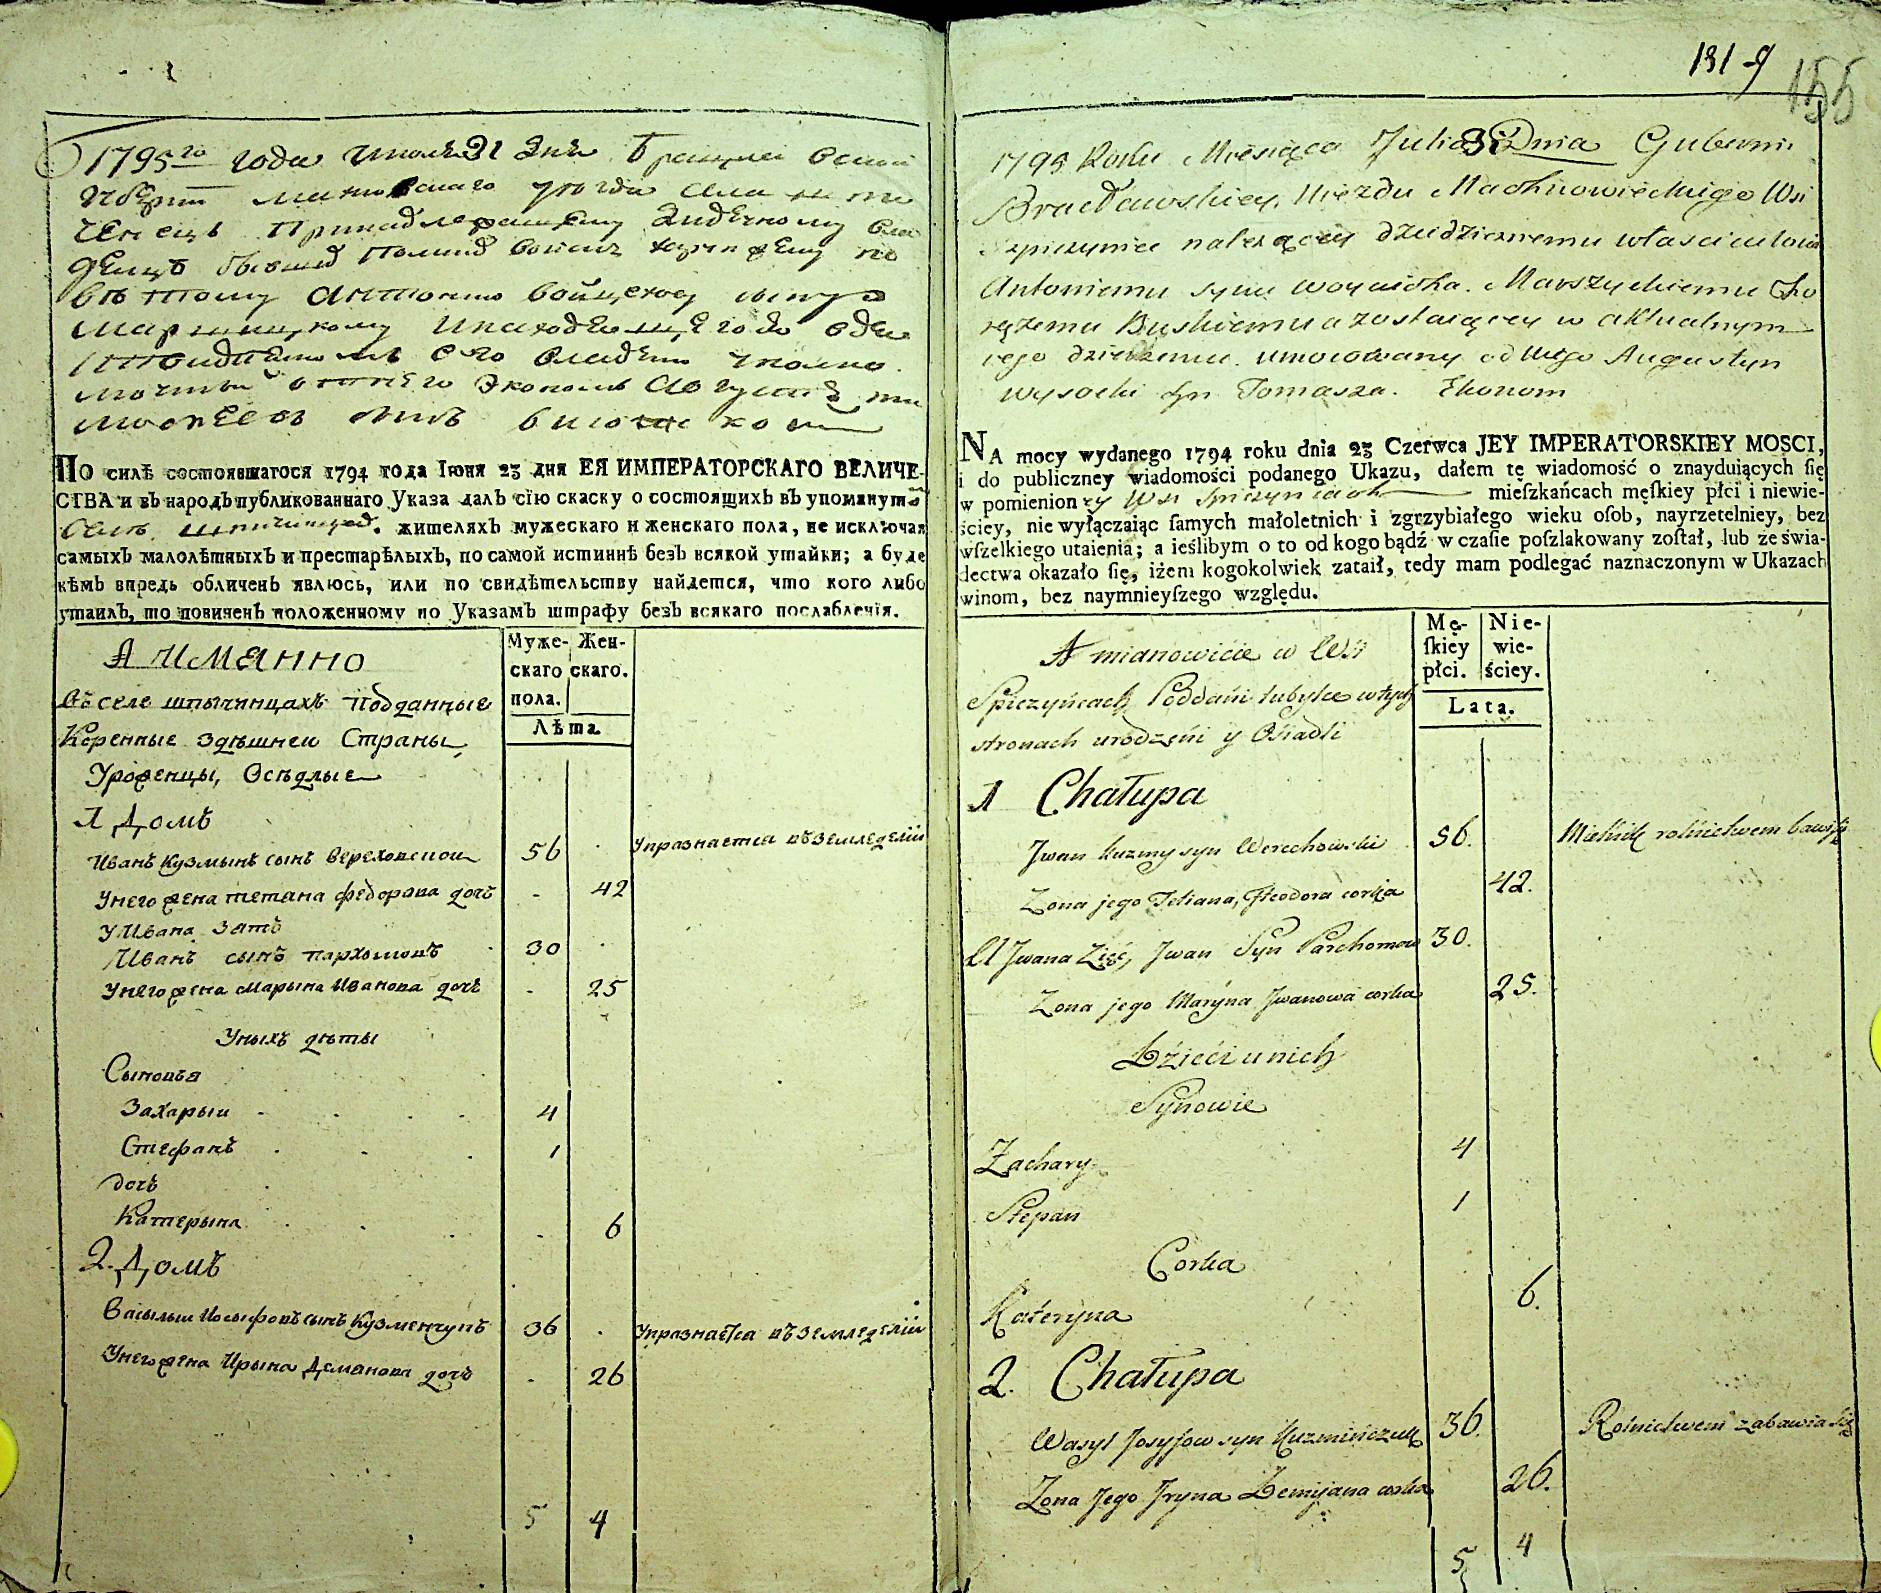 1795го года июля 31 дня Брацлавской
губерніи махновскаго уезда села шпи
чинецъ принадлежащему дидичному вла
маршицкому
мочный отнего Экономъ Августинъ
ПО силѣ состоявшагося 1794 года Іюня 23 дня ЕЯ ИМПЕРАТОРСКАГО ВЕЛИЧЕ-
СТВА и въ народъ публикованнаго Указа далъ сію скаску о состоящихъ въ упомянутомъ
Селѣ шпичинцахъ. жителяхъ мужескаго и женскаго пола, не исключая
самыхъ малолѣтныхъ и престарѣлыхъ, по самой истиннѣ безъ всякой утайки; а буде
кѣмъ впредь обличенъ явлюсь, или по свидѣтельству найдется, что кого либо
утаилъ, то повиненъ положенному по Указамъ штрафу безъ всякаго послабленія.
А имянно
Муже- Жен-
скаго скаго.
пола.
Лѣта
Въ селе шпычинцахъ подданные
Коренные здѣшней Страны
Уроженцы, Осѣдлые
1 Домъ
Иванъ Кузмынъ сынъ Вереховской 56 Упразнается въ земледеліи
Унего жена тетяна федорова дочь 42
У Ивана Зять
Иванъ сынъ пархомовъ 30
Унего жена Марына Иванова дочь 25
Уныхъ дѣты
Сыновья
Захарыи 4
Стефанъ 1
дочь
Катерына 6
2. Домъ
Васылыи Иосыфовъ сынъ Кузменчукъ 36 Упразнается въ земледеліи
Унего жена Ирына Демянова дочь 26
5 4
131-9
155
1795 Roku Miesiąca Julia 31 Dnia Guberni
Bracławskiey, Uiezdu Machnowieckiego Wsi
Szpiczyniec należącey dziedzicznemu właścicielowi
Antoniemu synu Woyciecha Marszyckiemu Cho
rążemu Buskiemu a zostaiącey w aktualnym
iego dzierżeniu umocowany od niego Augustyn
Wysocki syn Tomasza. Ekonom
NA mocy wydanego 1794 roku dnia 23 Czerwca JEY IMPERATORSKIEY MOSCI,
i do publiczney wiadomości podanego Ukazu, dałem tę wiadomość o znayduiących ſię
w pomienioney Wsi Spiczyncach mieſzkańcach męſkiey płci i niewie-
ściey, nie wyłączaiąc ſamych małoletnich i zgrzybiałego wieku oſob, nayrzetelniey, bez
wſzelkiego utaienia; a ieślibym o to od kogo bądź w czaſie poſzlakowany zoſtał, lub że świa-
dectwa okazało ſię, iżem kogokolwiek zataił, tedy mam podlegać naznaczonym w Ukazach
winom, bez naymnieyſzego względu.
A mianowicie w Wsi
Mę- Nie-
ſkiey wie-
płci. ściey.
Lata.
Spiczyńcach Poddani tubylce w tych
stronach urodzeni y Osiadli
1 Chałupa
Jwan Kuzmy syn Werechowski 56. Mielnik rolnictwem bawi się
Zona jego Tetiana, Fteodora corka 42.
U Jwana Zięć, Jwan Syn Parchomow 30.
Zona jego Maryna Jwanowa corka 25.
Dzieci u nich
Synowie
Zachary 4
Stepan 1
Corka
Kateryna 6.
2. Chałupa
Wasyl Josyfow syn Kuzmińczuk 36. Rolnictwem zabawia się
Zona Jego Jryna Demijana corka 26.
5 4